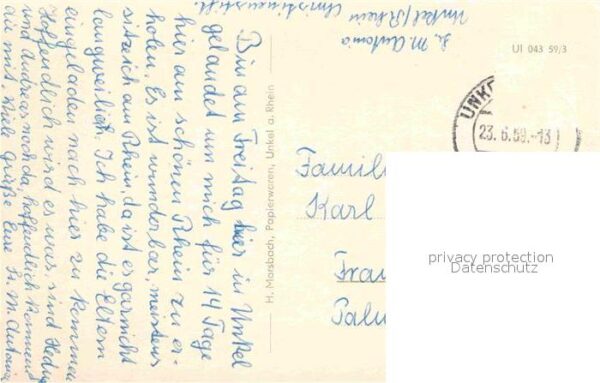 Bin am Freitag hier in Unkel
gelandet um mich für 14 Tage
hier am schönen Rhein zu er-
holen. Es ist wunderbar, meistens
sitz ich am Rhein, da ist es garnicht
langweilich. Ich habe die Eltern
eingeladen nach hier zu kommen
Hoffendlich wird es was, sind Hedwig
und Andreas noch da, hoffendlich kommen
sie mit. Viele Grüße Eure Sr. M. Antonia
Sr. M. Antonia
Unkel/Rhein
Christinenstift.
H. Morsbach, Papierwaren, Unkel a. Rhein
UI 043 59/3
UNK
23.6.59.-13
Famili
Karl
Fra
privacy protection
Datenschutz